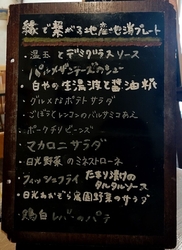 縁で繋がる地産地消プレート
・温玉とデミグラスソース
パルメザンチーズのシュー
・白やの生湯波と醤油糀
・グルメロポテトサラダ
・ごぼうとレンコンのバルサミコあえ
・ポークチリビーンズ
・マカロニサラダ
・日光野菜のミネストローネ
・フィッシュフライ たまり漬けの
タルタルソース
・日光おおぞら庭園野菜のサラダ
・鶏白レバーのパテ